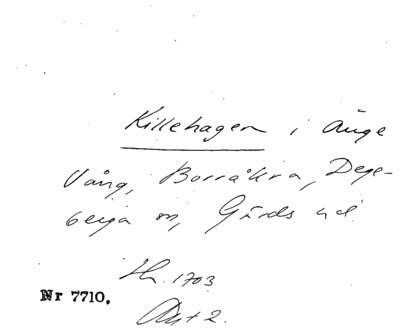 Killehagen i Änge
Vång, Borråkra, Dege-
berga sn, Gärds hd.
Lh. 1703
Akt 2.
Nr 7710.